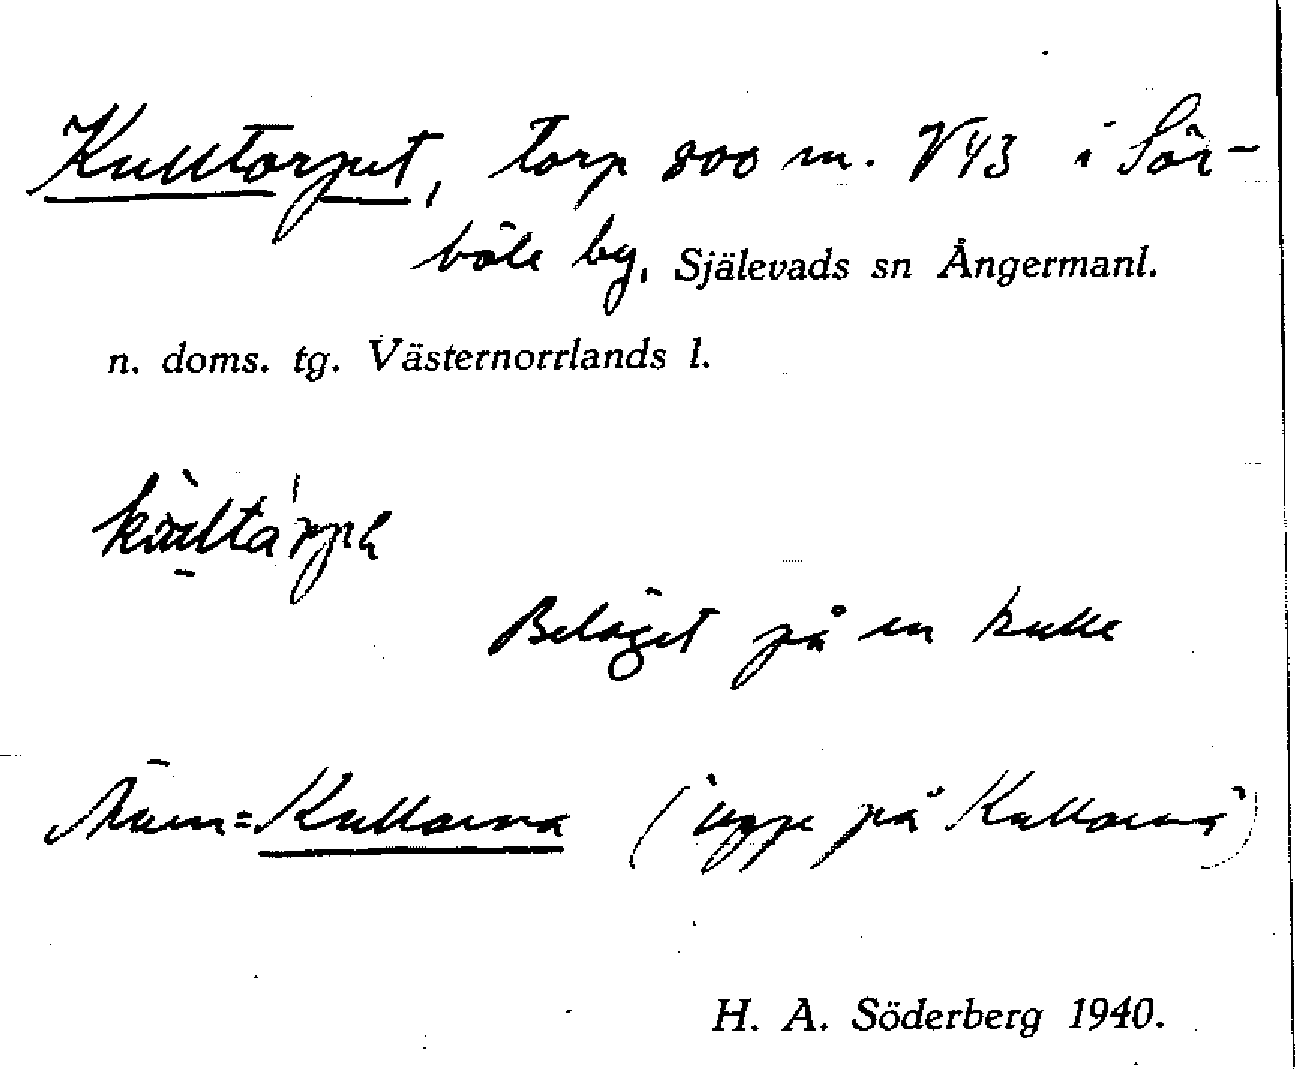 Kulltorpet, torp 800 m. V43 i Sör-
böle by, Själevads sn Ångermanl.
n. doms. tg. Västernorrlands l.
Beläget på en kulle
Kullorna (uppe på Kullorna)
H. A. Söderberg 1940.